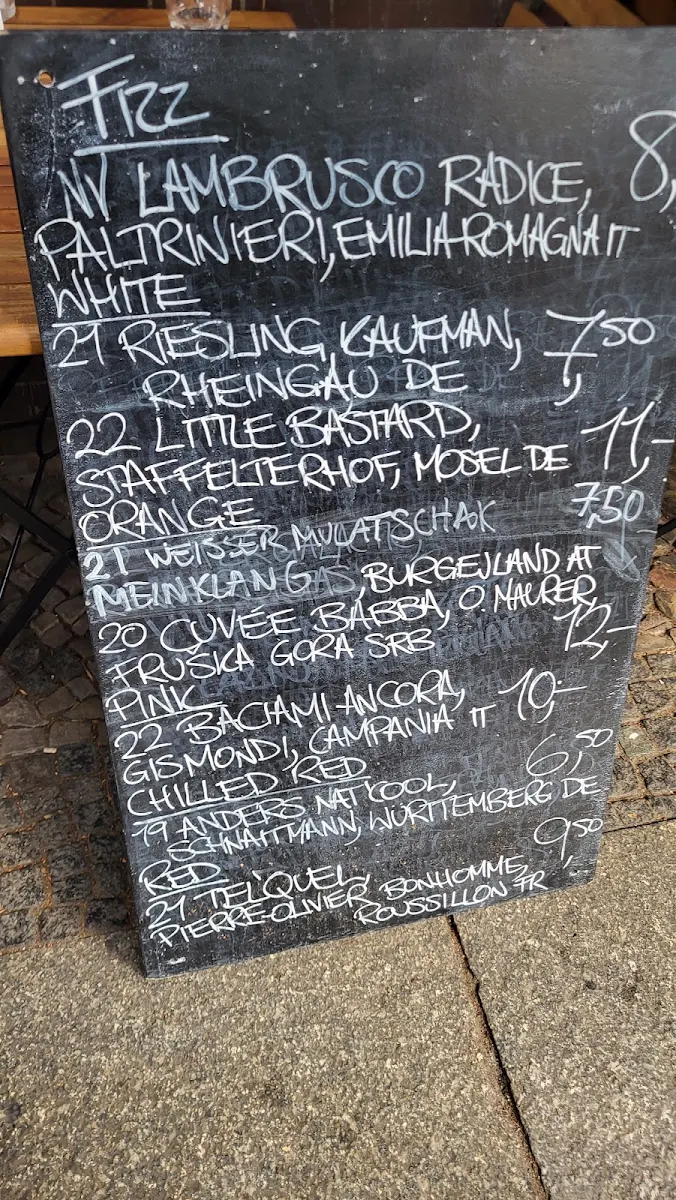 FIZZ
NV LAMBRUSCO RADICE, 8,
PALTRINIERI, EMILIA-ROMAGNA IT
WHITE
21 RIESLING, KAUFMAN, 7,50
RHEINGAU DE
22 LITTLE BASTARD,
STAFFELTERHOF, MOSEL DE 11,-
ORANGE
21 WEISSER MULATSCHAK 7,50
MEINKLANG AS, BURGENLAND AT
20 CUVÉE BABBA, O. MAURER,
FRUŠKA GORA SRB 12,-
PINK
22 BACIAMI ANCORA, 10,-
GISMONDI, CAMPANIA IT
CHILLED RED
19 ANDERS NAT'COOL, 6,50
SCHNAITMANN, WÜRTTEMBERG DE
RED
21 TEL'QUEL, 9,50
PIERRE-OLIVIER BONHOMME,
ROUSSILLON FR